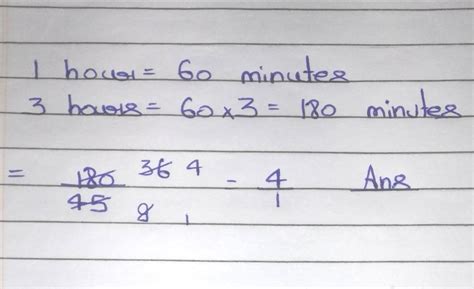 1 hours = 60 minutes
3 hours = 60 x 3 = 180 minutes
= 180/45 36/9 4/1 = 4/1 Ans